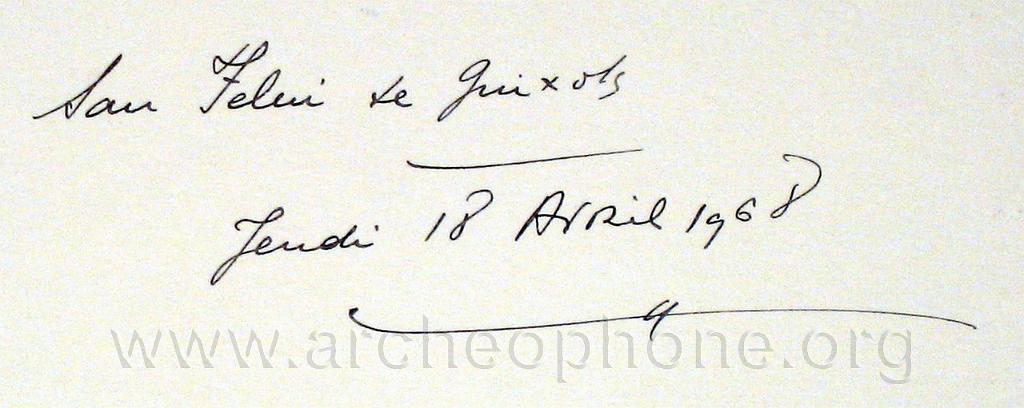 San Feliu de Guixols
Jeudi 18 Avril 1968
www.archeophone.org